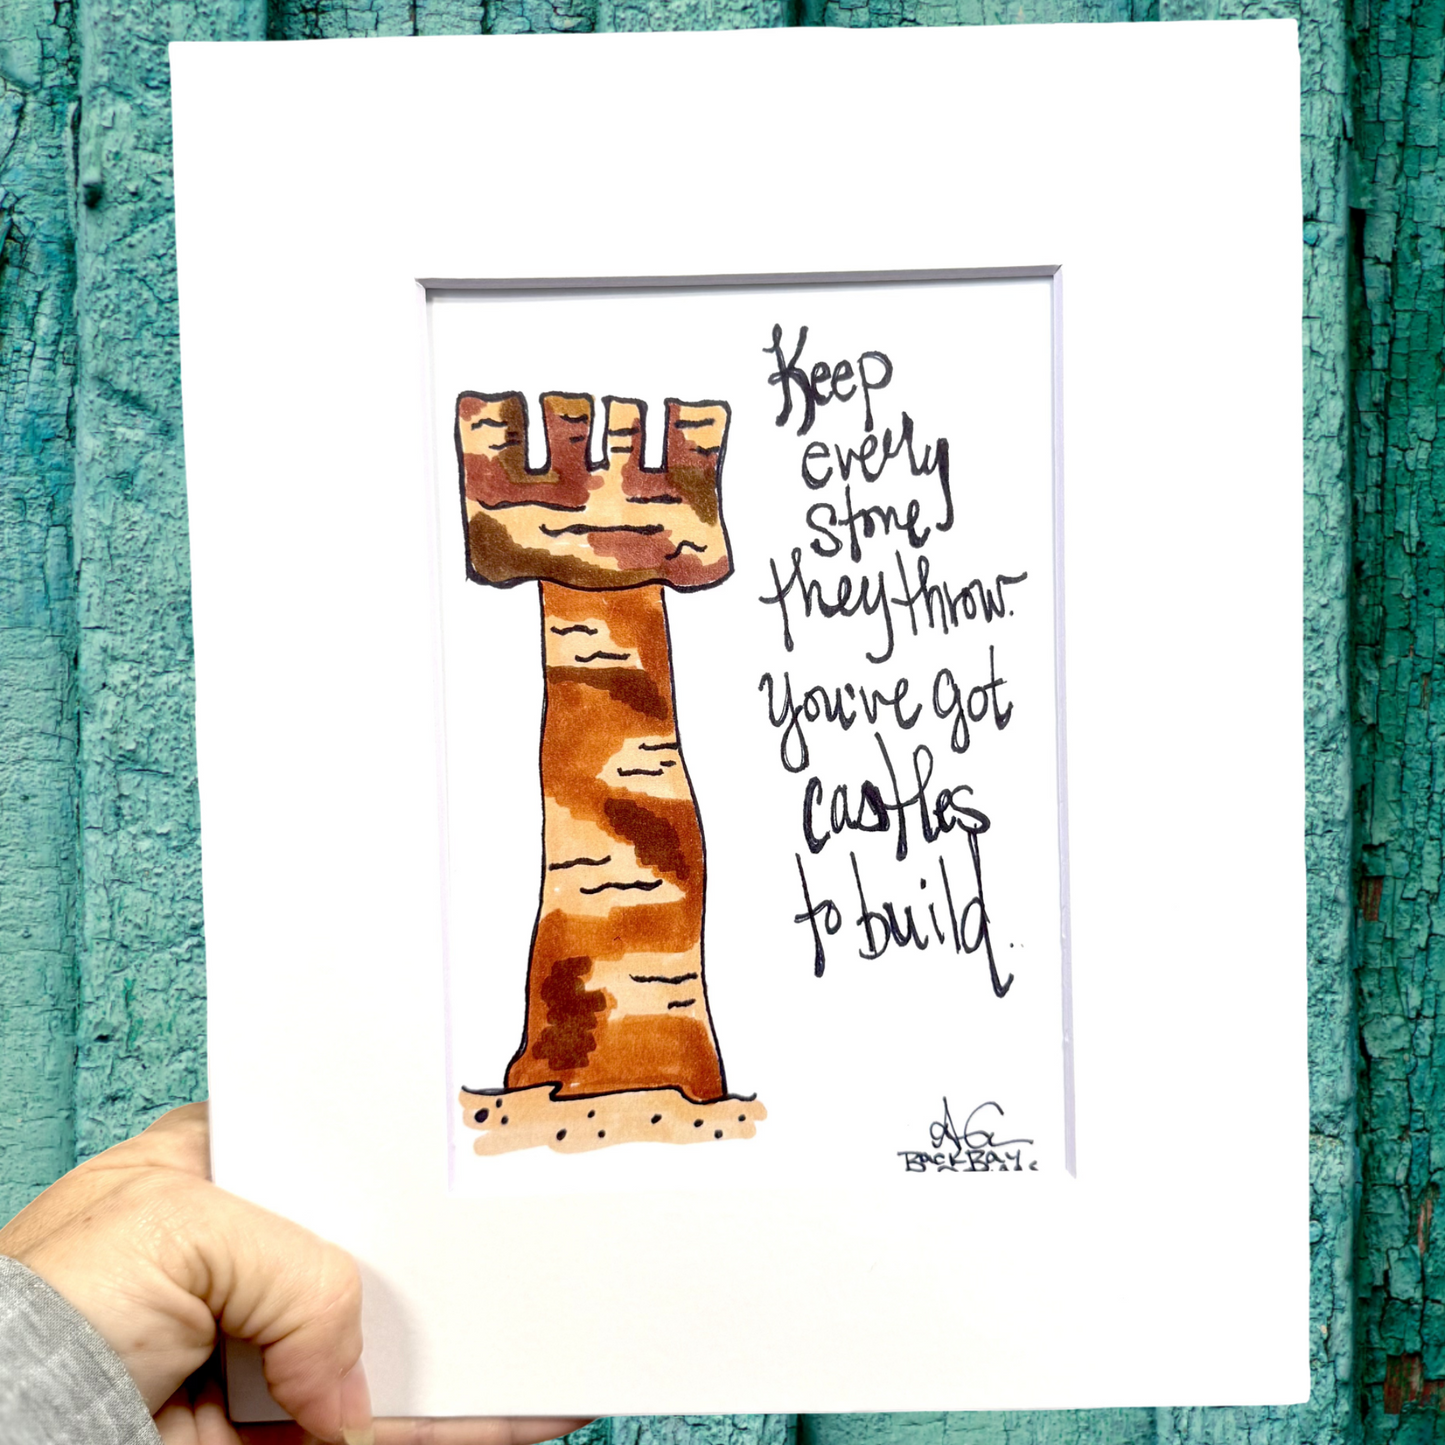 Keep
every
stone
they throw.
You've got
castles
to build..
BackBay